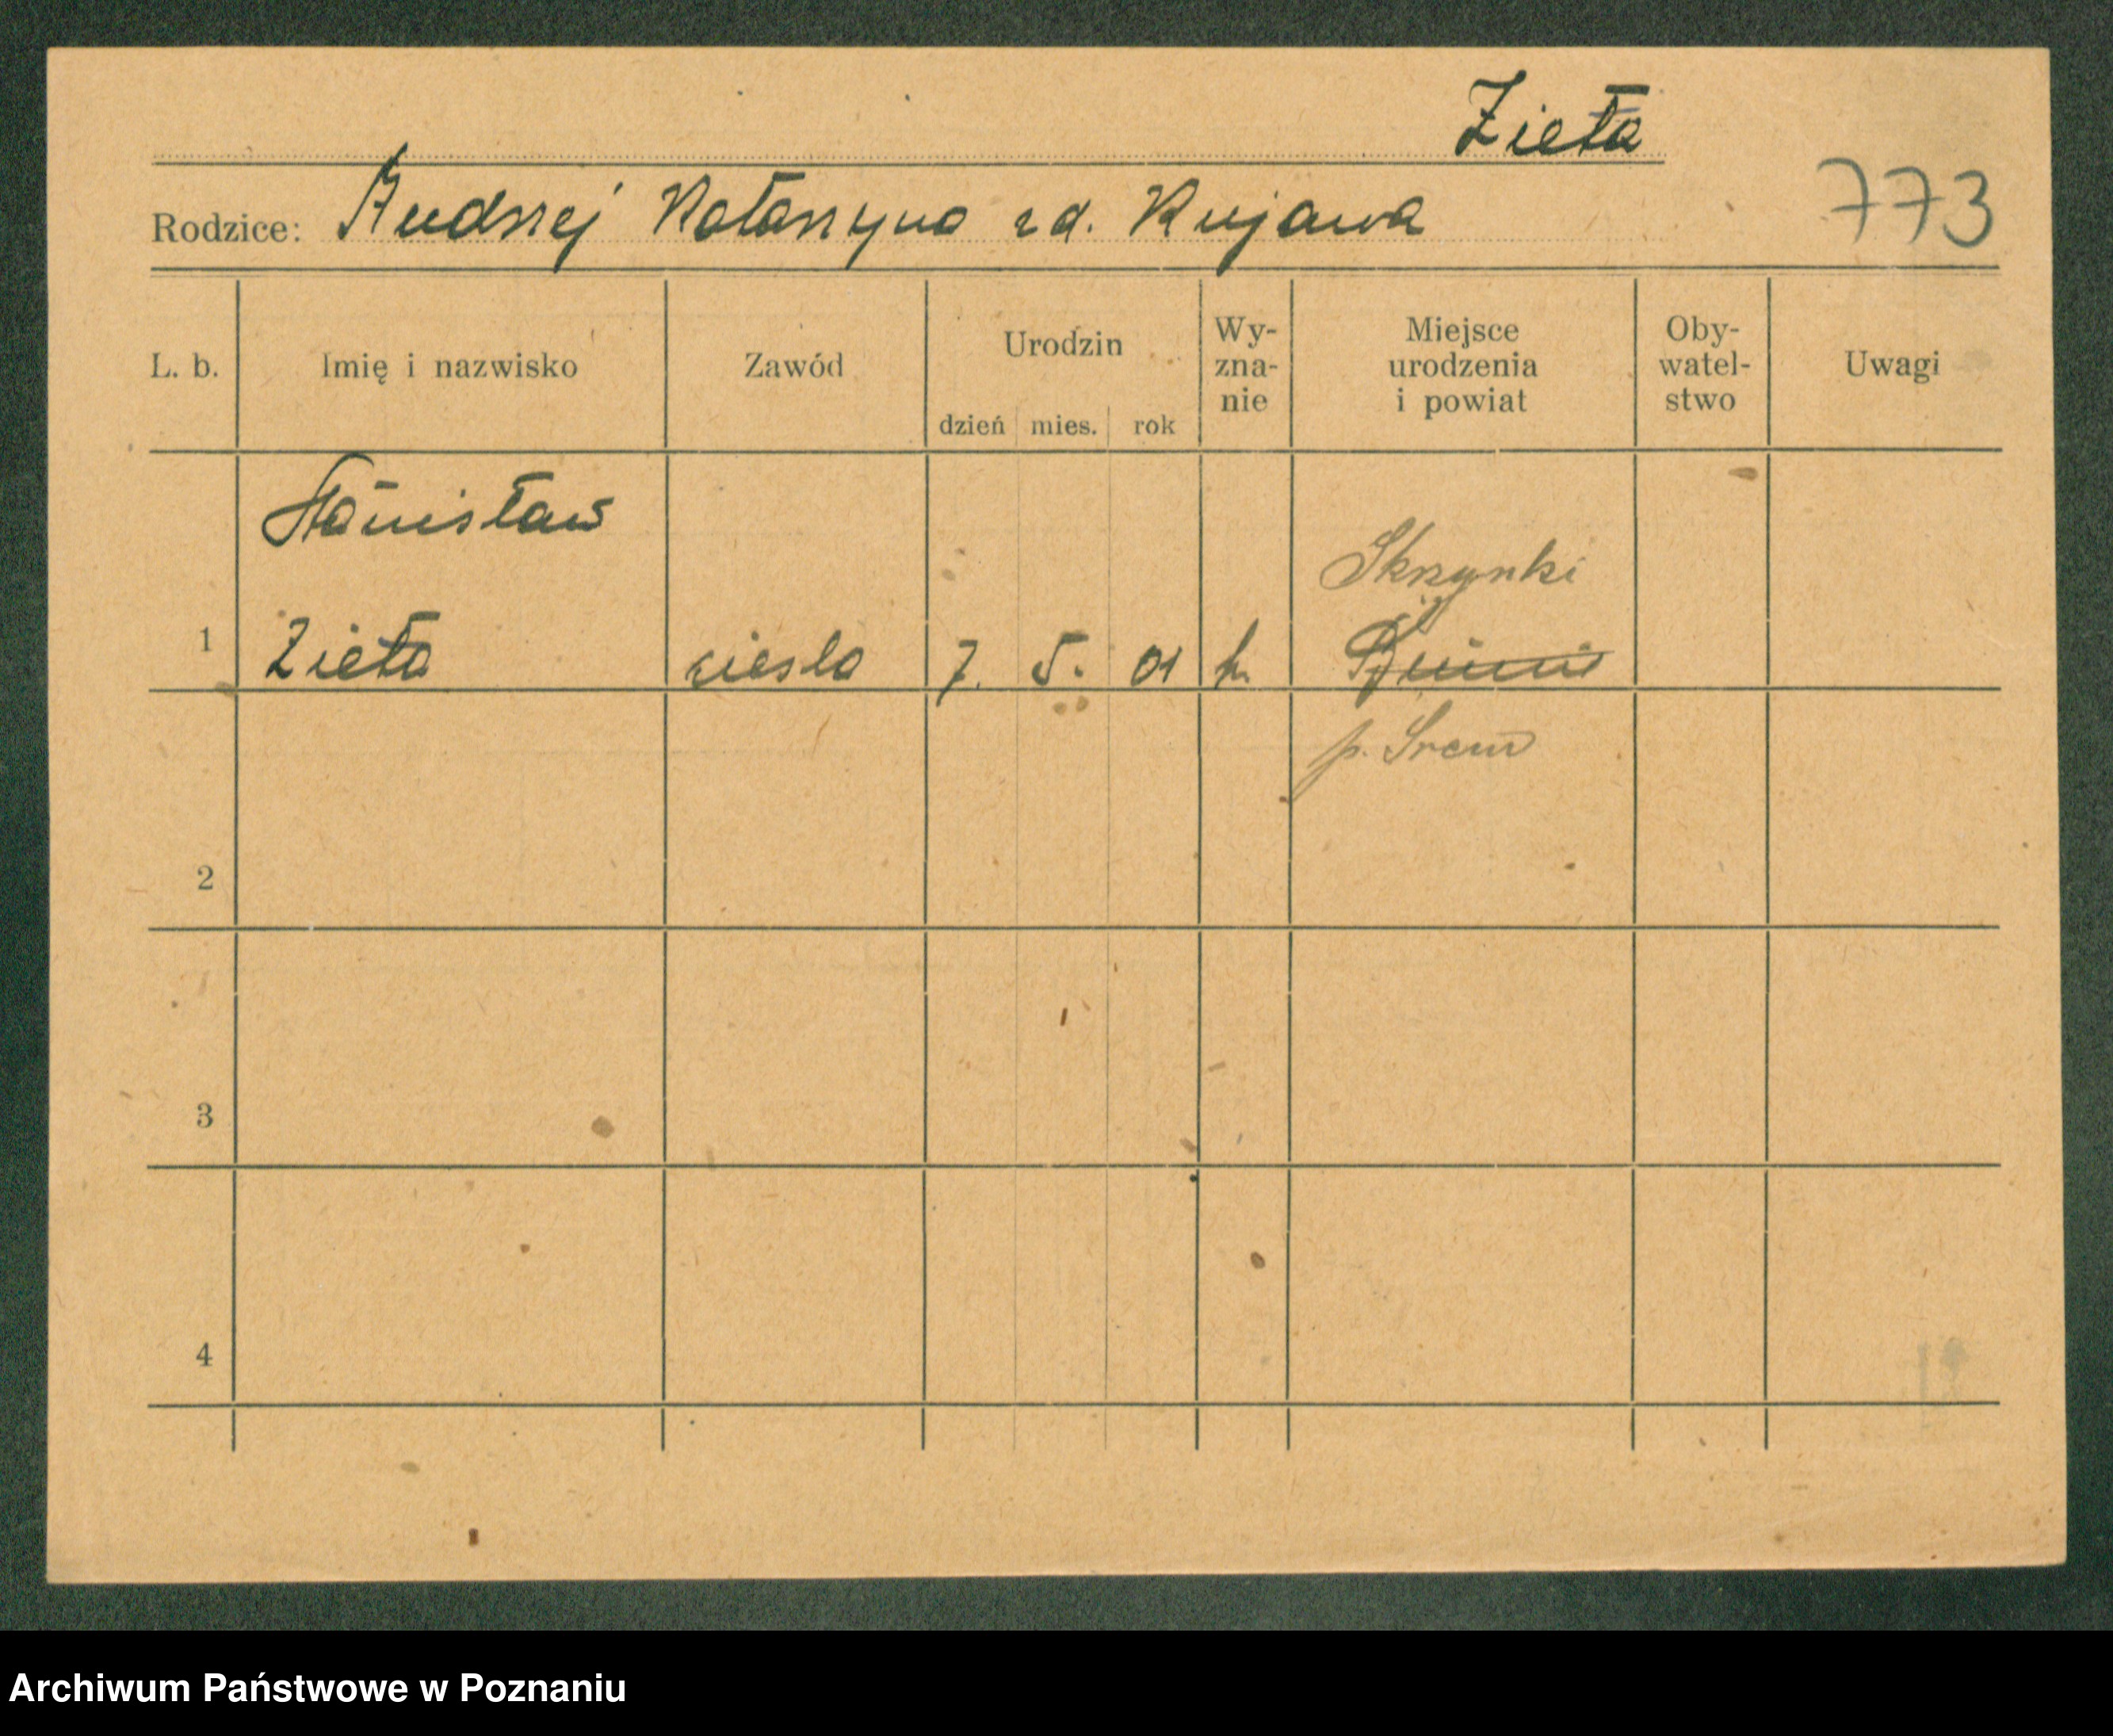 Zięta
Rodzice: Andrzej Katarzyna zd. Kujawa
773
L. b. Imię i nazwisko Zawód Urodzin dzień mies. rok Wy-zna-nie Miejsce urodzenia i powiat Oby-watel-stwo Uwagi
Stanisław
Skrzynki
1 Zięta cieśla 7. 5. 01 k.
p. Śrem
2
3
4
Archiwum Państwowe w Poznaniu